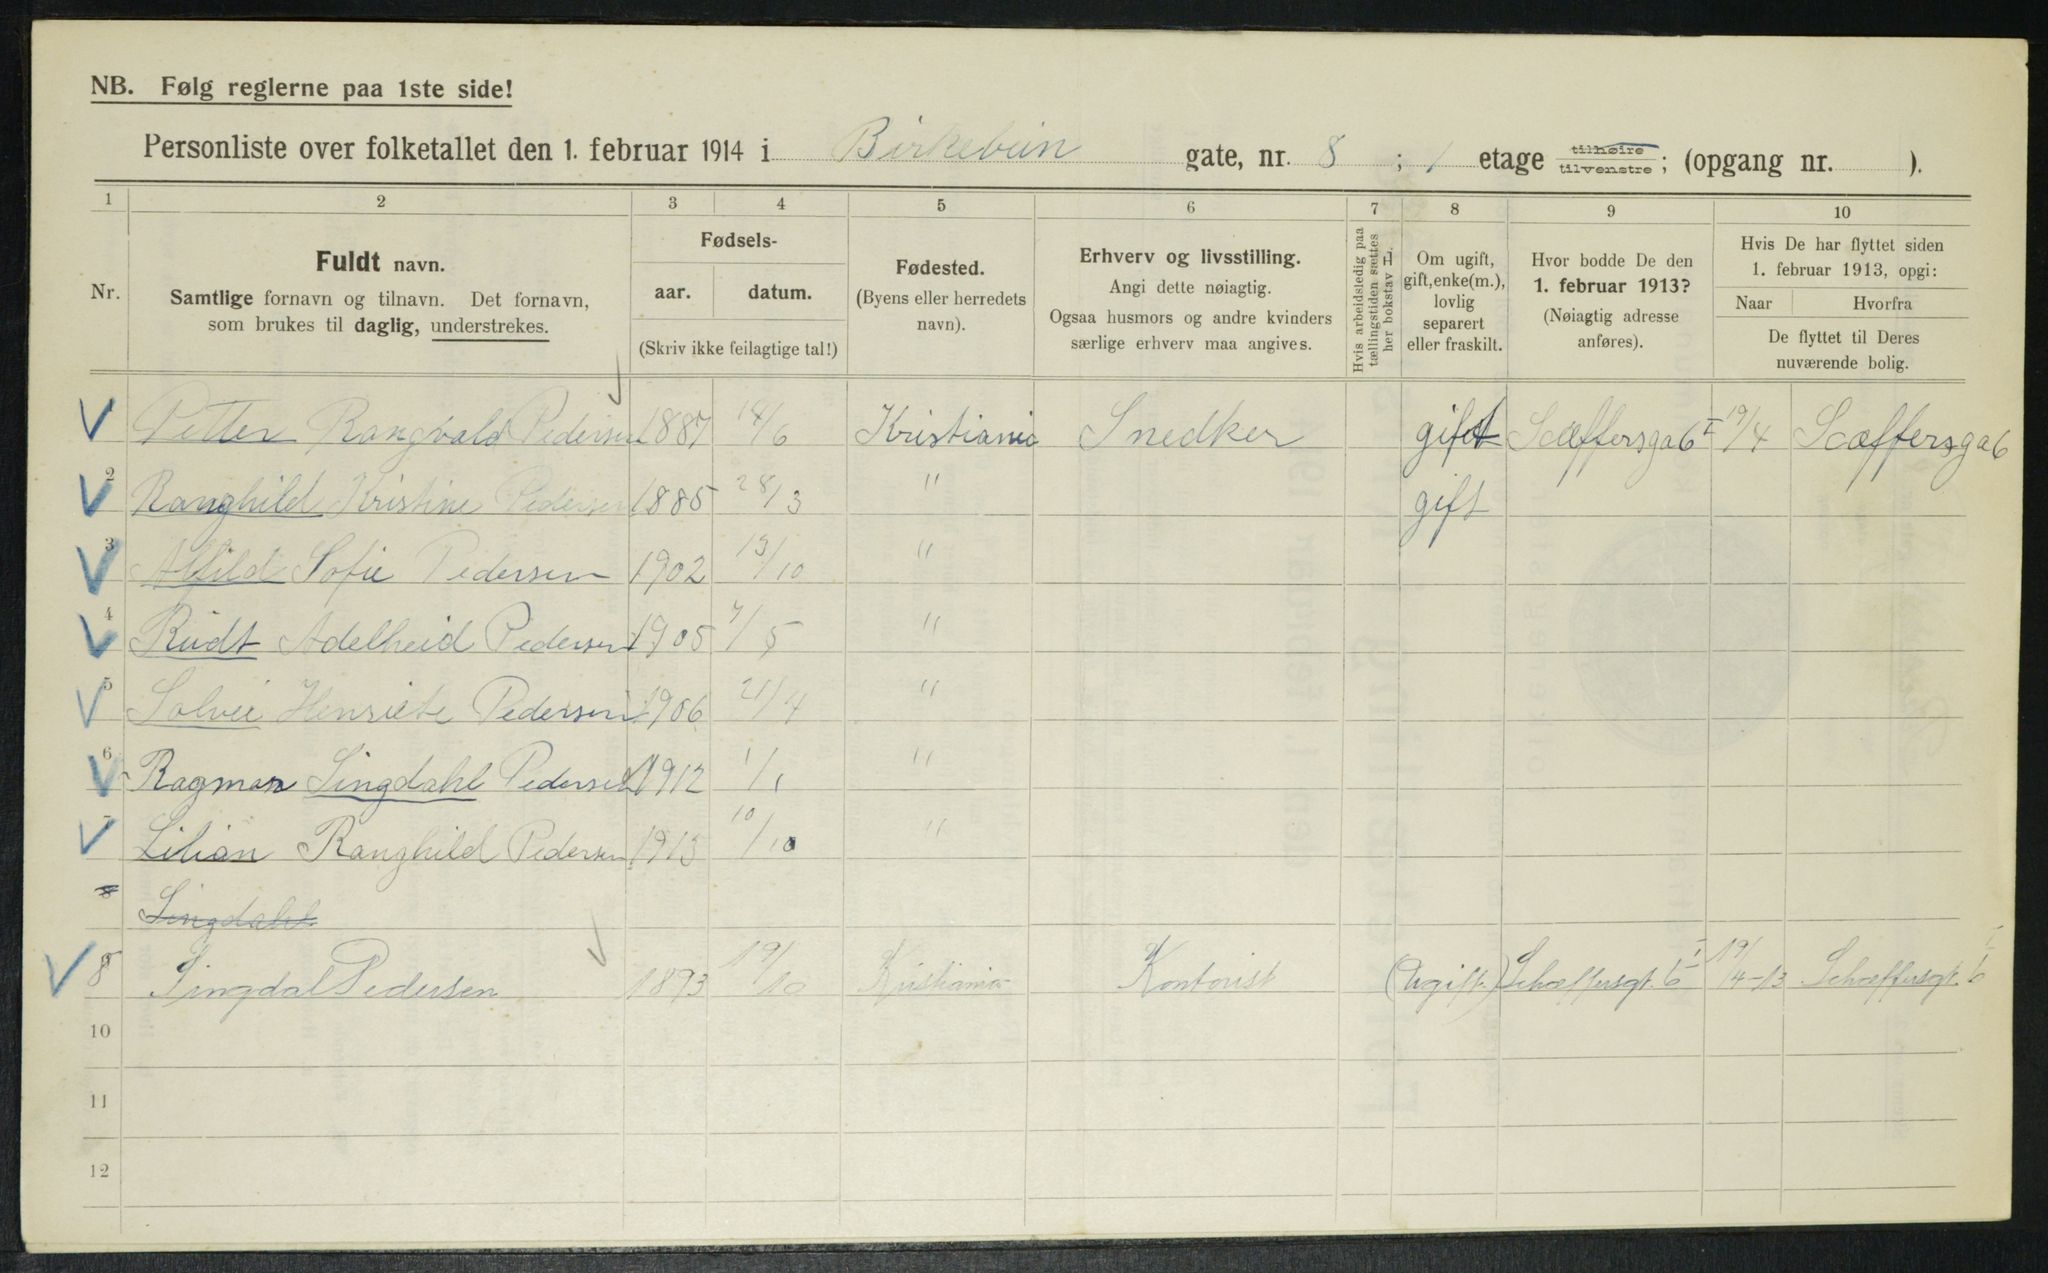 NB. Følg reglerne paa 1ste side!
Personliste over folketallet den 1. februar 1914 i Birkebein gate, nr. 8 ; 1 etage tilhøire tilvenstre; (opgang nr. ).
1 2 3 4 5 6 7 8 9 10
Nr.
Fuldt navn.
Samtlige fornavn og tilnavn. Det fornavn,
som brukes til daglig, understrekes.
Fødsels-
aar. datum.
(Skriv ikke feilagtige tal!)
Fødested.
(Byens eller herredets
navn).
Erhverv og livsstilling.
Angi dette nøiagtig.
Ogsaa husmors og andre kvinders
særlige erhverv maa angives.
Hvis arbeidsledig paa
tællingstiden sættes
her bokstav L.
Om ugift,
gift, enke(m.),
lovlig
separert
eller fraskilt.
Hvor bodde De den
1. februar 1913?
(Nøiagtig adresse
anføres).
Hvis De har flyttet siden
1. februar 1913, opgi:
Naar Hvorfra
De flyttet til Deres
nuværende bolig.
Petter Rangvald Pedersen 1887 14/6 Kristiania Snedker gift Scæffersga 6 I 19/4 Scæffersga 6
2 Ranghild Kristine Pedersen 1885 28/3 " gift
3 Alfild Sofie Pedersen 1902 13/10 "
4 Rudt Adelheid Pedersen 1905 7/5 "
5 Solvei Henriete Pedersen 1906 21/4 "
6 Ragmar Singdahl Pedersen 1912 1/1 "
7 Lilian Ranghild Pedersen 1913 10/10 "
8 Singdahl
8 Singdal Pedersen 1893 19/10 Kristiania Kontorist (Ugift.) Schæffersgt. 6 I 19/4-13 Schæffersgt. 6 I
10
11
12